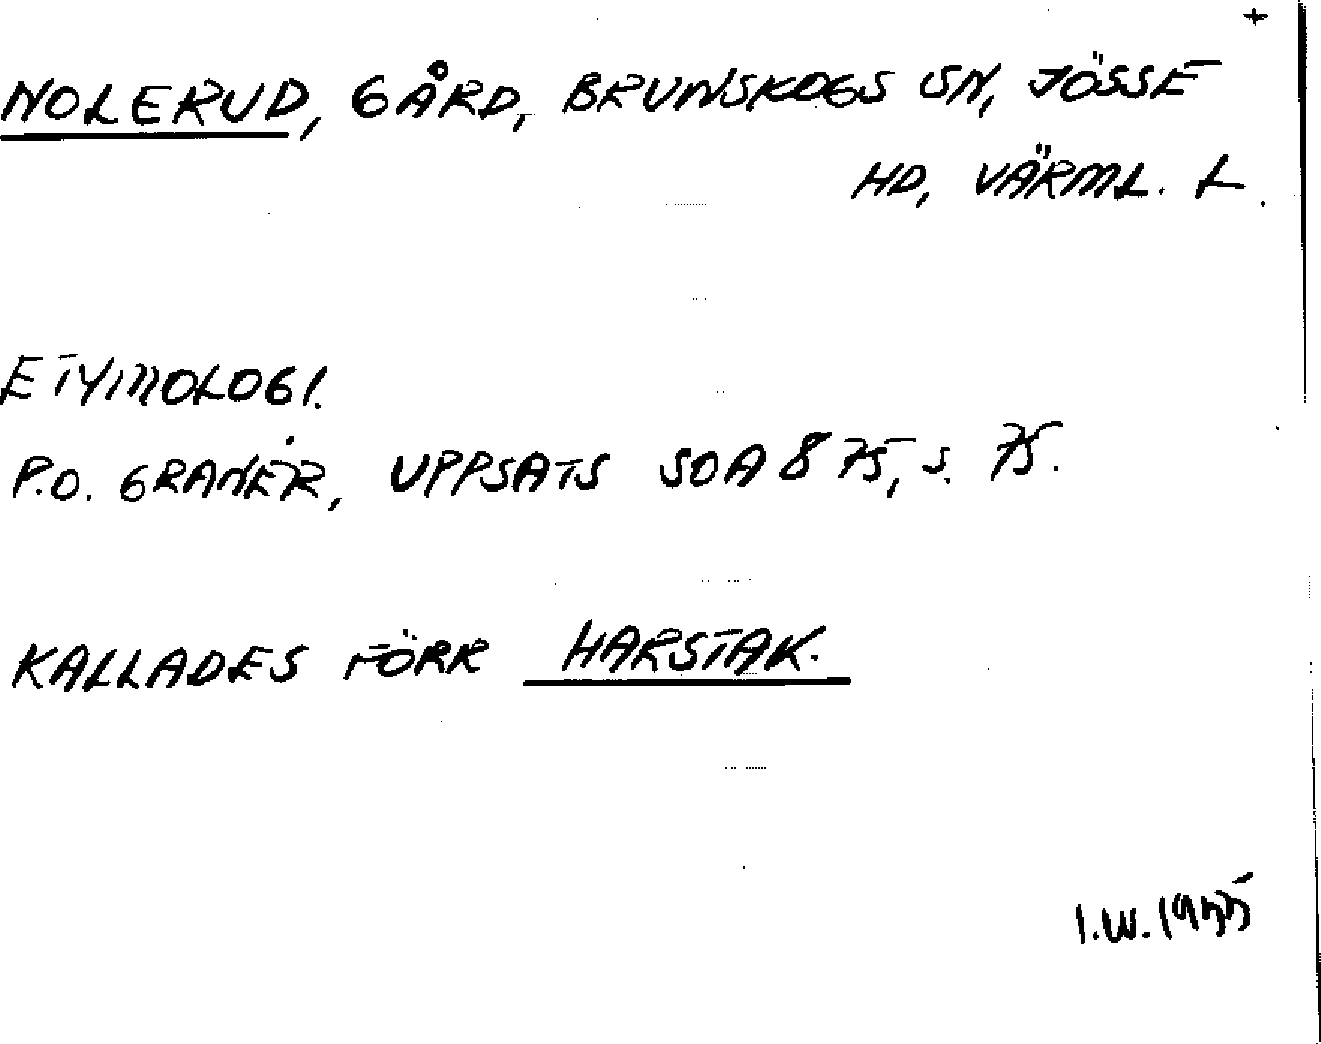 +
NOLERUD, GÅRD, BRUNSKOGS SN, JÖSSE
HD, VÄRML. L.
ETYMOLOGI.
P.O. GRANÉR, UPPSATS SOA 875, S. 75.
KALLADES FÖRR HARSTAK.
I.W. 1955